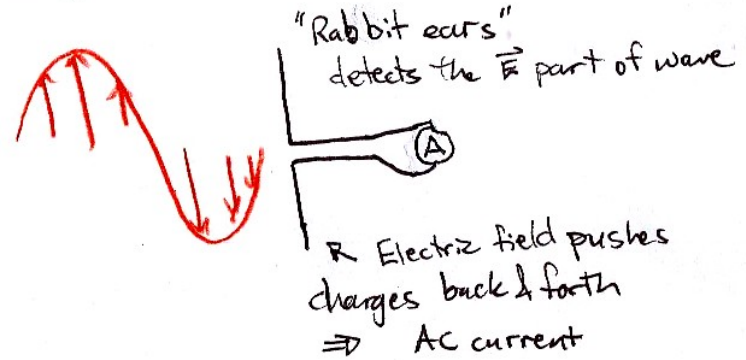 "Rabbit ears"
detects the E⃗ part of wave
A
Electric field pushes
charges back & forth
⇒ AC current